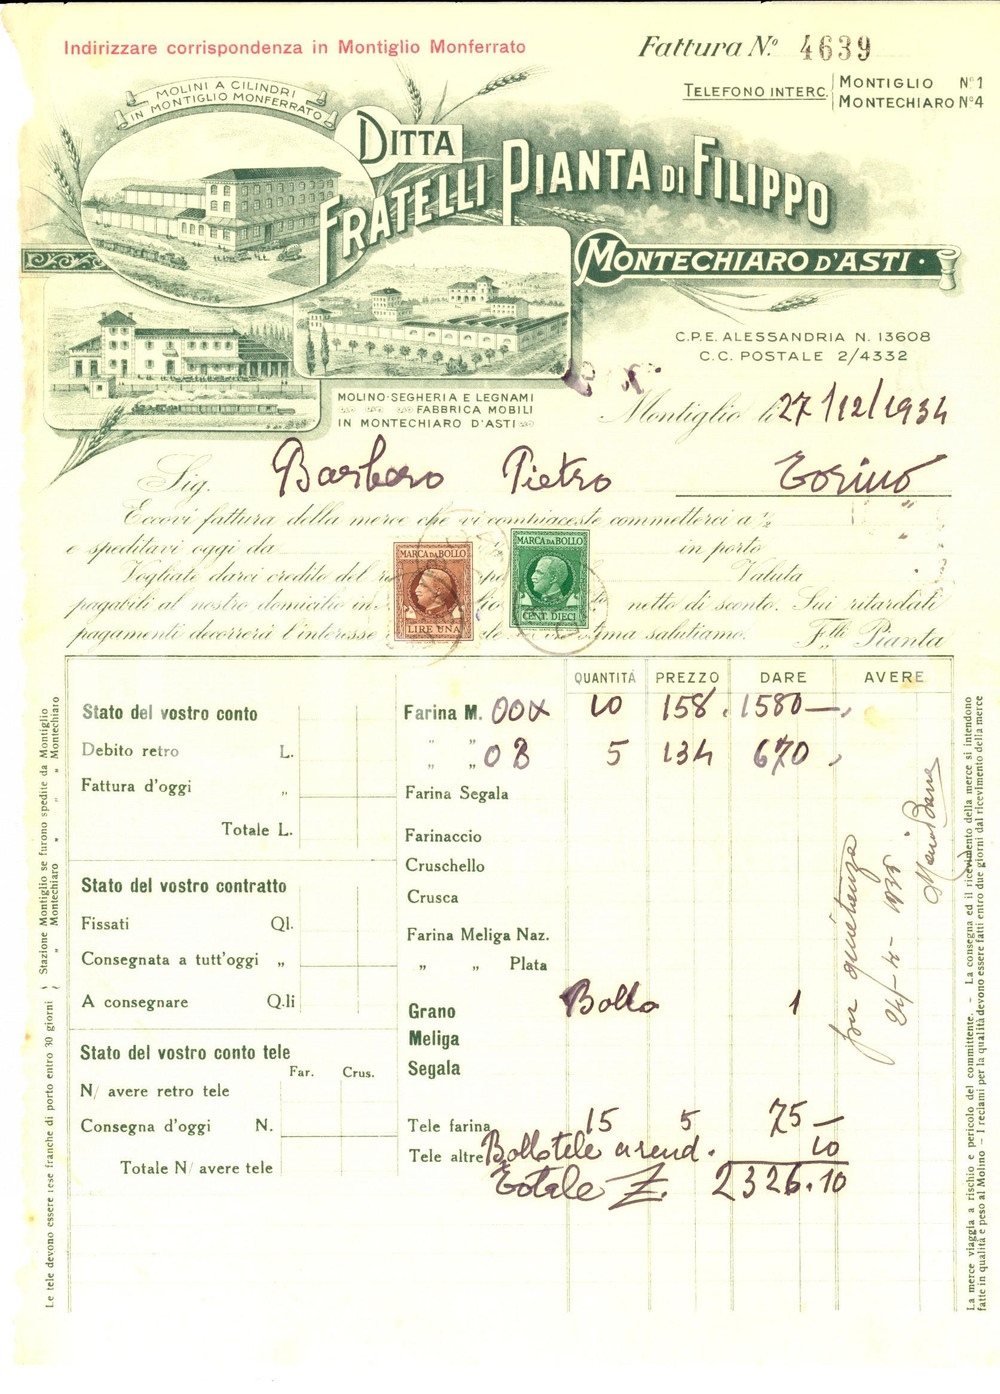 Indirizzare corrispondenza in Montiglio Monferrato
Fattura N.º 4639
TELEFONO INTERC. MONTIGLIO Nº 1
MONTECHIARO Nº 4
MOLINI A CILINDRI
IN MONTIGLIO MONFERRATO
DITTA
FRATELLI PIANTA DI FILIPPO
MONTECHIARO D'ASTI
C.P.E. ALESSANDRIA N. 13608
C.C. POSTALE 2/4332
MOLINO-SEGHERIA E LEGNAMI
FABBRICA MOBILI
IN MONTECHIARO D'ASTI
Montiglio li 27/12/1934
Sig. Barbero Pietro Torino
Eccovi fattura della merce che vi compiaceste commetterci a ½
e speditavi oggi da in porto
Vogliate darci credito del Valuta
pagabili al nostro domicilio in netto di sconto. Sui ritardati
pagamenti decorrerà l'interesse salutiamo. F.lli Pianta
MARCA DA BOLLO
LIRE UNA
MARCA DA BOLLO
CENT. DIECI
QUANTITÀ PREZZO DARE AVERE
Stato del vostro conto
Debito retro L.
Fattura d'oggi "
Totale L.
Stato del vostro contratto
Fissati Ql.
Consegnata a tutt'oggi "
A consegnare Q.li
Stato del vostro conto tele
Far. Crus.
N/ avere retro tele
Consegna d'oggi N.
Totale N/ avere tele
Farina M. 00X 10 158. 1580—
" " 0B 5 134 670
Farina Segala
Farinaccio
Cruschello
Crusca
Farina Meliga Naz.
" " Plata
Grano Bollo 1
Meliga
Segala
Tele farina 15 5 75—
Tele altre Bollo tele a rend. 10
Totale L. 2326.10
per quietanza
1935
Le tele devono essere rese franche di porto entro 30 giorni { Stazione Montiglio se furono spedite da Montiglio
" Montechiaro " " " Montechiaro
La merce viaggia a rischio e pericolo del committente. - La consegna ed il ricevimento della merce si intendono
fatte in qualità e peso al Molino - I reclami per la qualità devono essere fatti entro due giorni dal ricevimento della merce